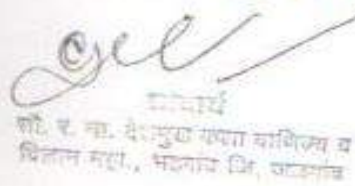 प्राचार्य
सौ. र. ना. देशमुख कला वाणिज्य व
विज्ञान महा., भडगाव जि. जळगाव